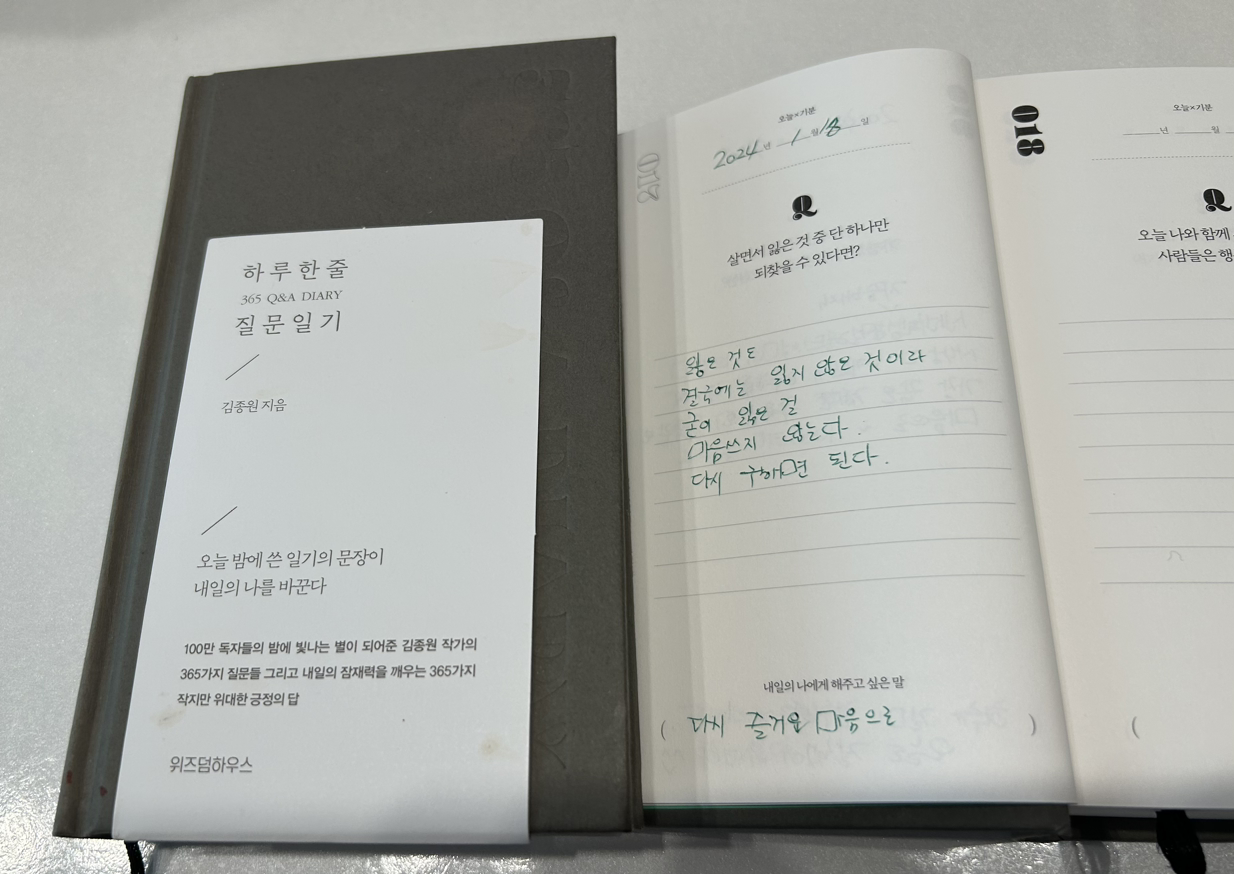 하루한줄
365 Q&A DIARY
질문일기
김종원 지음
오늘 밤에 쓴 일기의 문장이
내일의 나를 바꾼다
100만 독자들의 밤에 빛나는 별이 되어준 김종원 작가의
365가지 질문들 그리고 내일의 잠재력을 깨우는 365가지
작지만 위대한 긍정의 답
위즈덤하우스
오늘×기분
2024년 1월 18일
Q
살면서 잃은 것 중 단 하나만
되찾을 수 있다면?
잃은 것도
결국에는 잃지 않은 것이라
굳이 잃은 걸
마음쓰지 않는다.
다시 구하면 된다.
내일의 나에게 해주고 싶은 말
( 다시 즐거운 마음으로 )
018
오늘×기분
년 월
Q
오늘 나와 함께
사람들은 행
(